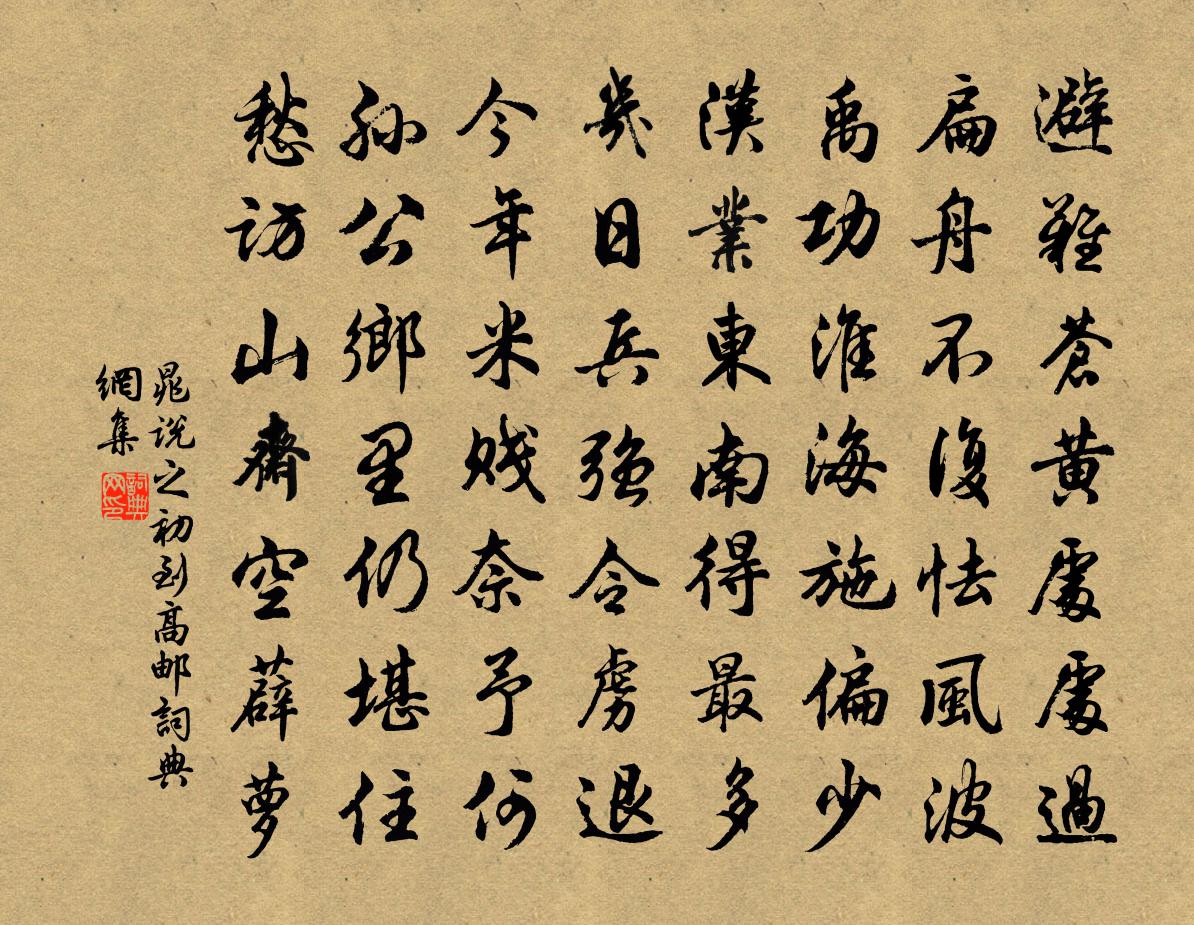 避難蒼黃處處過
扁舟不復怯風波
禹功淮海施偏少
漢業東南得最多
幾日兵強令虜退
今年米賤奈予何
孫公鄉里仍堪住
愁訪山齋空薜蘿
晁說之初到高邮詞典
網集
詞典网印